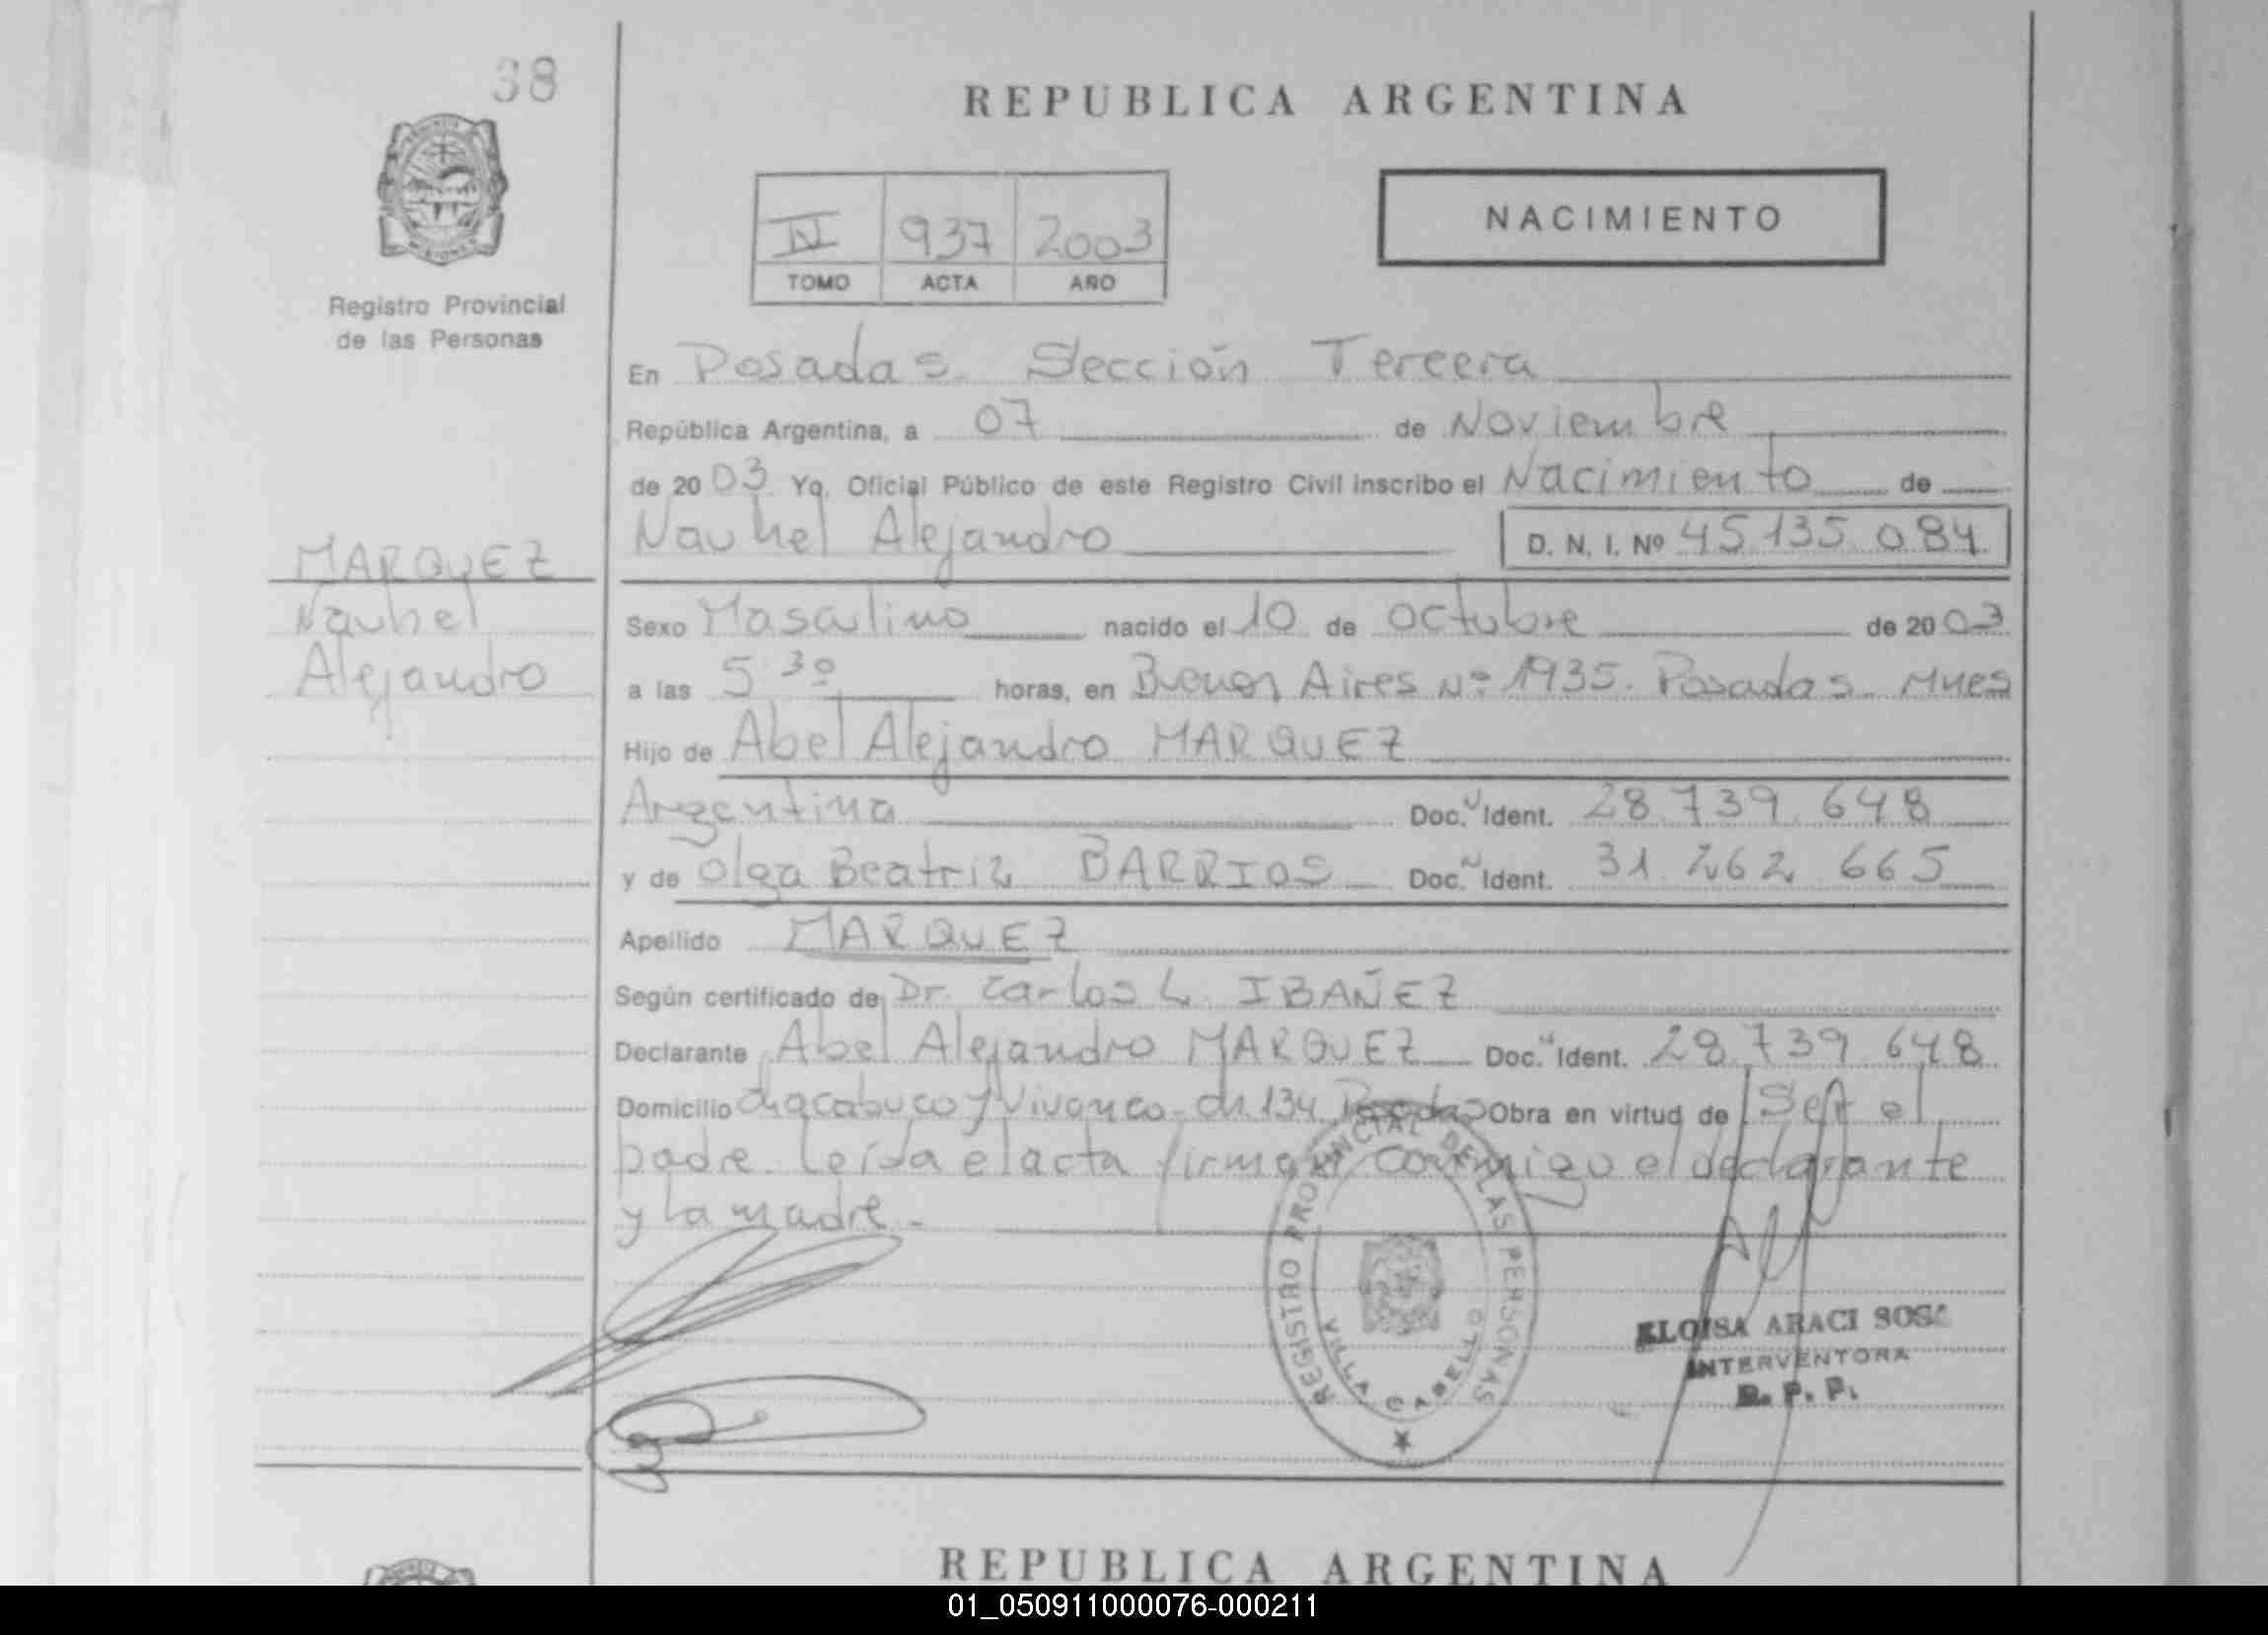 38
REPUBLICA ARGENTINA
IV 937 2003
TOMO ACTA AÑO
NACIMIENTO
Registro Provincial
de las Personas
En Posadas. Sección Tercera
República Argentina, a 07 de Noviembre
de 2003 Yo, Oficial Público de este Registro Civil inscribo el Nacimiento de
Nauhel Alejandro D. N. I. Nº 45.135.084
MARQUEZ
Nauhel
Alejandro
Sexo Masculino nacido el 10 de octubre de 2003
a las 5.30 horas, en Buenos Aires Nº 1935. Posadas. Mnes
Hijo de Abel Alejandro MARQUEZ
Argentina Doc. Ident. 28.739.648
y de Olga Beatriz BARRIOS Doc. Ident. 31.262.665
Apellido MARQUEZ
Según certificado de Dr. Carlos L. IBAÑEZ
Declarante Abel Alejandro MARQUEZ Doc. Ident. 28.739.648
Domicilio Chacabuco y Vivanco - ch 134 Posadas Obra en virtud de Ser el
padre. Leída el acta firman conmigo el declarante
y la madre.-
REGISTRO PROVINCIAL DE LAS PERSONAS
VILLA CABELLO
ELOISA ARACI SOSA
INTERVENTORA
R. P. P.
REPUBLICA ARGENTINA
01_050911000076-000211